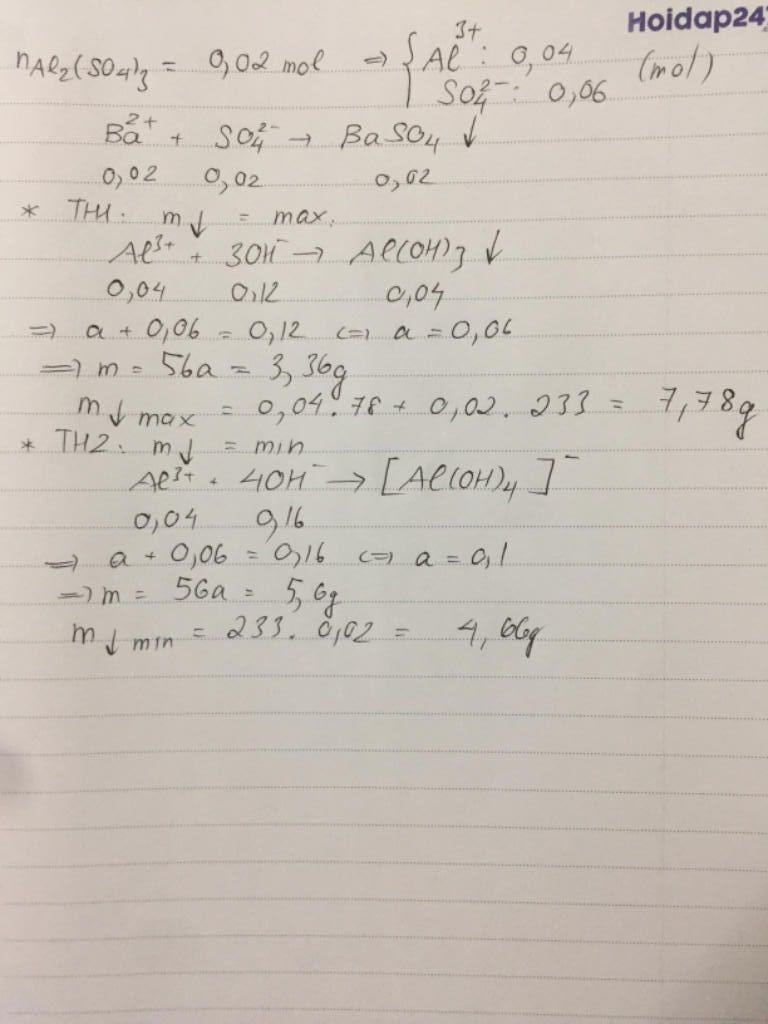 Hoidap247
nAl2(SO4)3 = 0,02 mol => { Al3+ : 0,04 (mol)
SO42- : 0,06
Ba2+ + SO42- → BaSO4 ↓
0,02 0,02 0,02
* TH1: m↓ = max.
Al3+ + 3OH- → Al(OH)3 ↓
0,04 0,12 0,04
=> a + 0,06 = 0,12 <=> a = 0,06
=> m = 56a = 3,36g
m↓ max = 0,04.78 + 0,02.233 = 7,78g
* TH2: m↓ = min
Al3+ + 4OH- → [Al(OH)4]-
0,04 0,16
=> a + 0,06 = 0,16 <=> a = 0,1
=> m = 56a = 5,6g
m↓ min = 233.0,02 = 4,66g